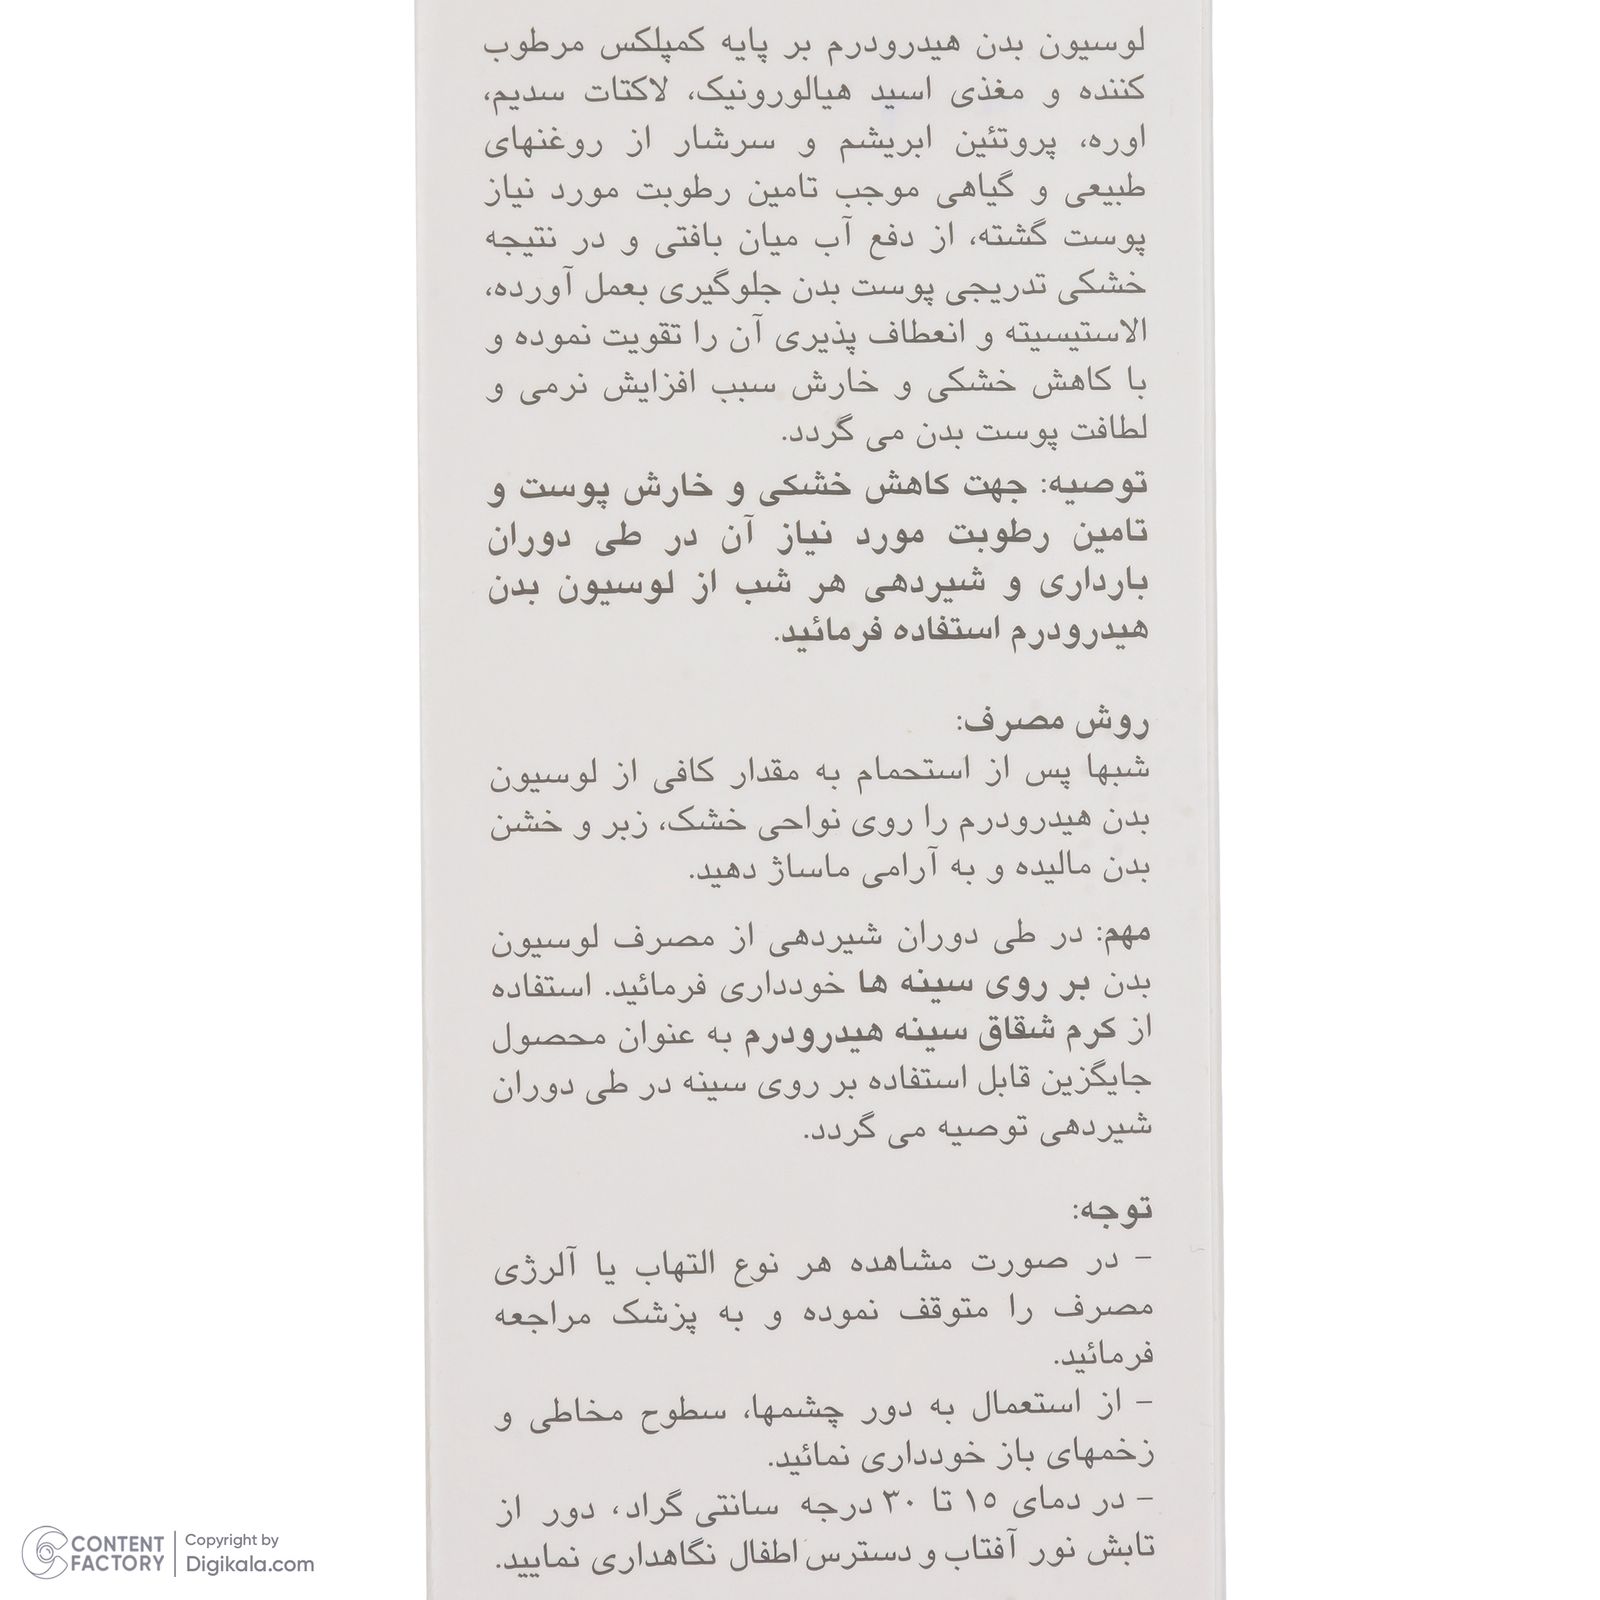 لوسیون بدن هیدرودرم بر پایه کمپلکس مرطوب
کننده و مغذی اسید هیالورونیک، لاکتات سدیم،
اوره، پروتئین ابریشم و سرشار از روغنهای
طبیعی و گیاهی موجب تامین رطوبت مورد نیاز
پوست گشته، از دفع آب میان بافتی و در نتیجه
خشکی تدریجی پوست بدن جلوگیری بعمل آورده،
الاستیسیته و انعطاف پذیری آن را تقویت نموده و
با کاهش خشکی و خارش سبب افزایش نرمی و
لطافت پوست بدن می گردد.
توصیه: جهت کاهش خشکی و خارش پوست و
تامین رطوبت مورد نیاز آن در طی دوران
بارداری و شیردهی هر شب از لوسیون بدن
هیدرودرم استفاده فرمائید.
روش مصرف:
شبها پس از استحمام به مقدار کافی از لوسیون
بدن هیدرودرم را روی نواحی خشک، زبر و خشن
بدن مالیده و به آرامی ماساژ دهید.
مهم: در طی دوران شیردهی از مصرف لوسیون
بدن بر روی سینه ها خودداری فرمائید. استفاده
از کرم شقاق سینه هیدرودرم به عنوان محصول
جایگزین قابل استفاده بر روی سینه در طی دوران
شیردهی توصیه می گردد.
توجه:
- در صورت مشاهده هر نوع التهاب یا آلرژی
مصرف را متوقف نموده و به پزشک مراجعه
فرمائید.
- از استعمال به دور چشمها، سطوح مخاطی و
زخمهای باز خودداری نمائید.
- در دمای ۱۵ تا ۳۰ درجه سانتی گراد، دور از
تابش نور آفتاب و دسترس اطفال نگاهداری نمایید.
CONTENT FACTORY
Copyright by
Digikala.com